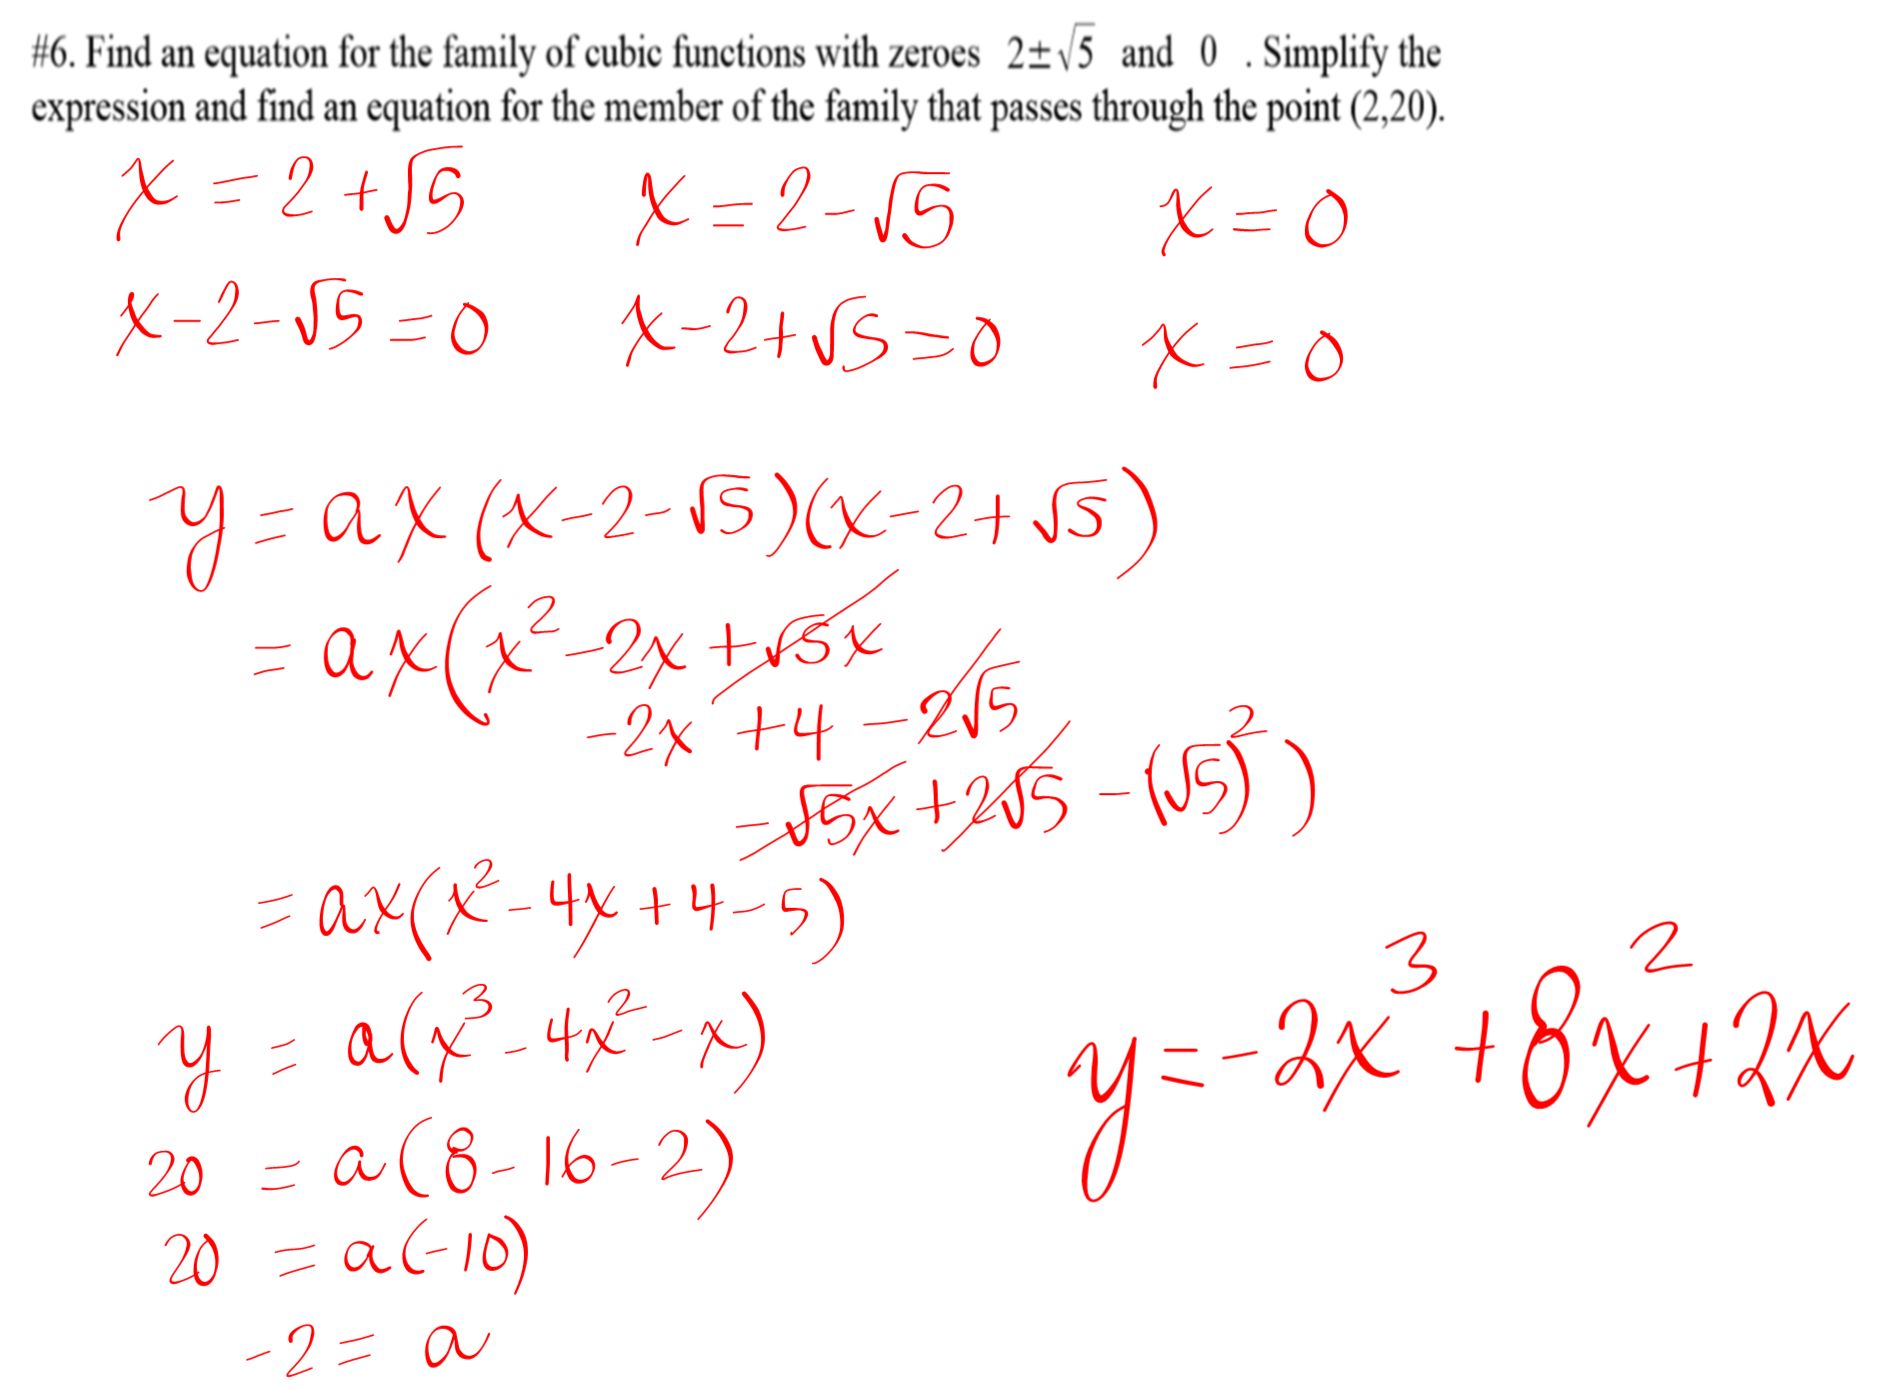 #6. Find an equation for the family of cubic functions with zeroes 2±√5 and 0 . Simplify the
expression and find an equation for the member of the family that passes through the point (2,20).
x = 2 + √5 x = 2 - √5 x = 0
x - 2 - √5 = 0 x - 2 + √5 = 0 x = 0
y = ax(x - 2 - √5)(x - 2 + √5)
= ax(x² - 2x + √5x
- 2x + 4 - 2√5
- √5x + 2√5 - (√5)²)
= ax(x² - 4x + 4 - 5)
y = a(x³ - 4x² - x)
y = -2x³ + 8x² + 2x
20 = a(8 - 16 - 2)
20 = a(-10)
-2 = a